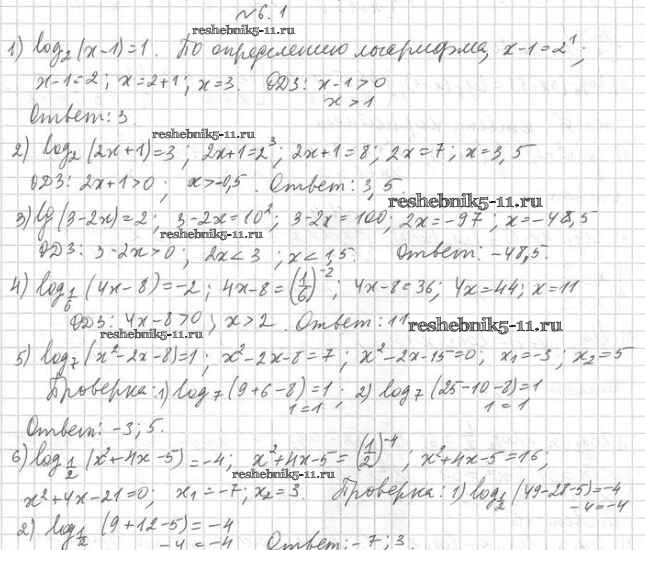 №6.1
reshebnik5-11.ru
1) log₂(x-1)=1. По определению логарифма, x-1=2¹;
x-1=2; x=2+1; x=3. ОДЗ: x-1>0
x>1
Ответ: 3
reshebnik5-11.ru
2) log₂(2x+1)=3; 2x+1=2³; 2x+1=8; 2x=7; x=3,5
ОДЗ: 2x+1>0; x>-0,5. Ответ: 3,5.
reshebnik5-11.ru
3) lg(3-2x)=2; 3-2x=10²; 3-2x=100; 2x=-97; x=-48,5
reshebnik5-11.ru
ОДЗ: 3-2x>0; 2x<3; x<1,5. Ответ: -48,5.
4) log_{1/6}(4x-8)=-2; 4x-8=(1/6)⁻²; 4x-8=36; 4x=44; x=11
ОДЗ: 4x-8>0; x>2. Ответ: 11
reshebnik5-11.ru
reshebnik5-11.ru
5) log₇(x²-2x-8)=1; x²-2x-8=7; x²-2x-15=0; x₁=-3; x₂=5
Проверка: 1) log₇(9+6-8)=1; 2) log₇(25-10-8)=1
1=1 1=1
Ответ: -3; 5.
6) log_{1/2}(x²+4x-5)=-4; x²+4x-5=(1/2)⁻⁴; x²+4x-5=16;
reshebnik5-11.ru
x²+4x-21=0; x₁=-7; x₂=3. Проверка: 1) log_{1/2}(49-28-5)=-4
-4=-4
2) log_{1/2}(9+12-5)=-4
-4=-4 Ответ: -7; 3.